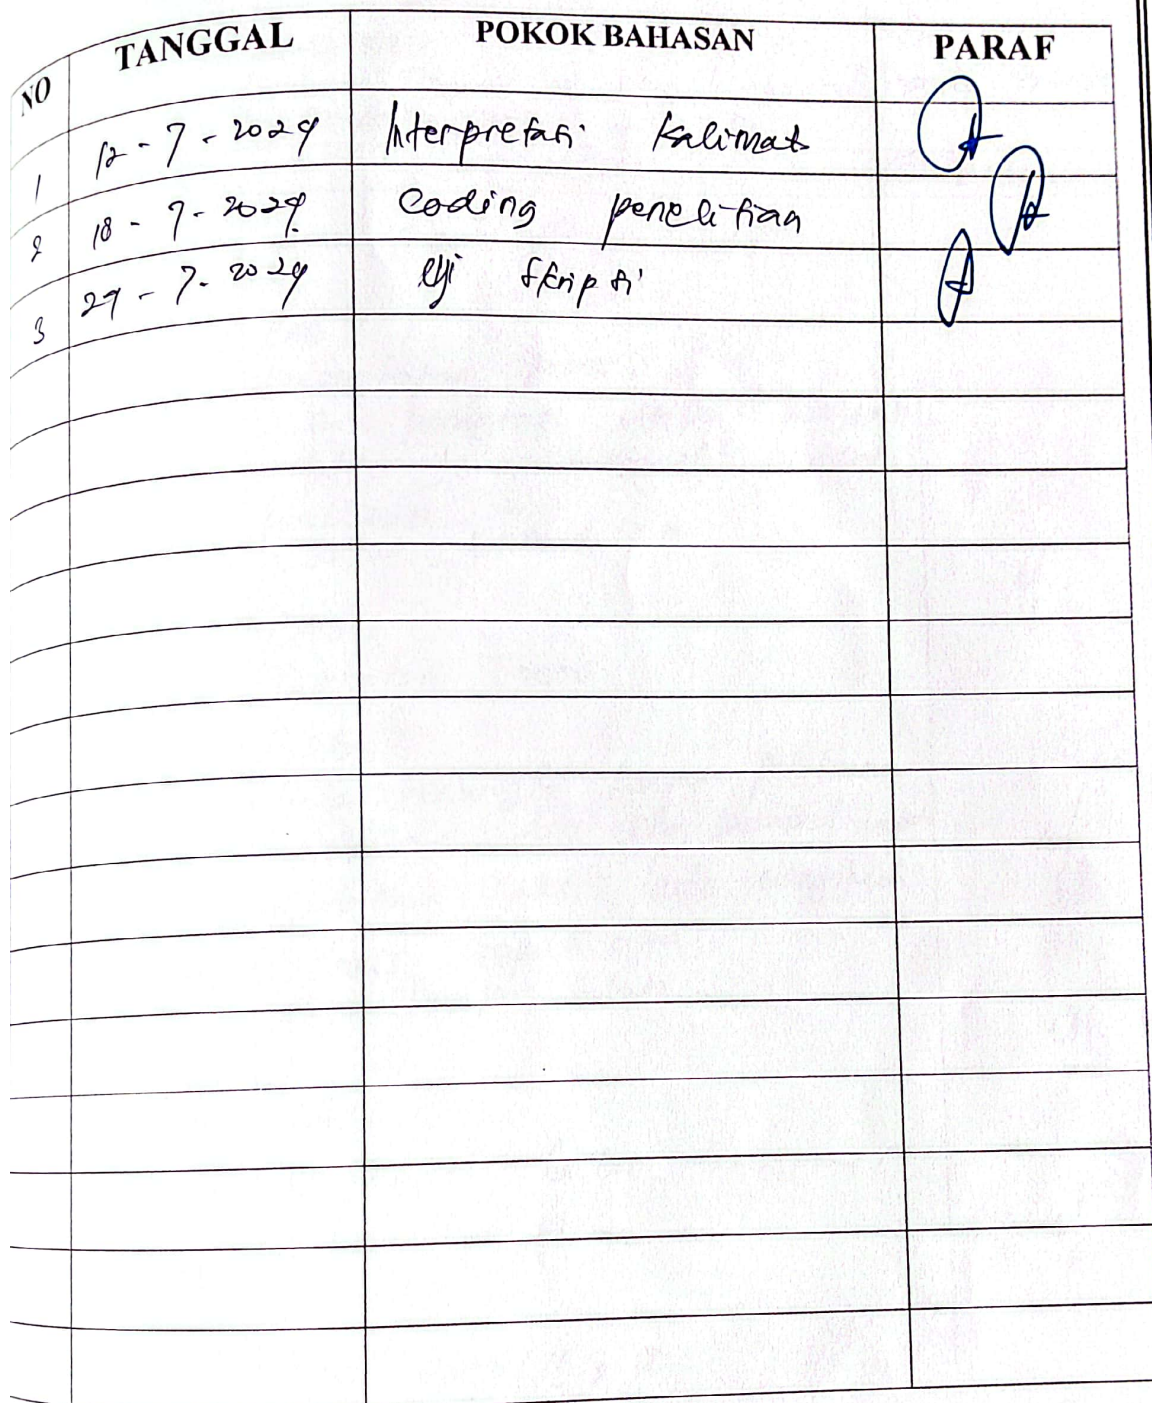 NO TANGGAL POKOK BAHASAN PARAF
1 12 - 7 - 2024 Interpretasi Kalimat
2 18 - 7 - 2024 coding penelitian
3 29 - 7 - 2024 Uji Skripsi